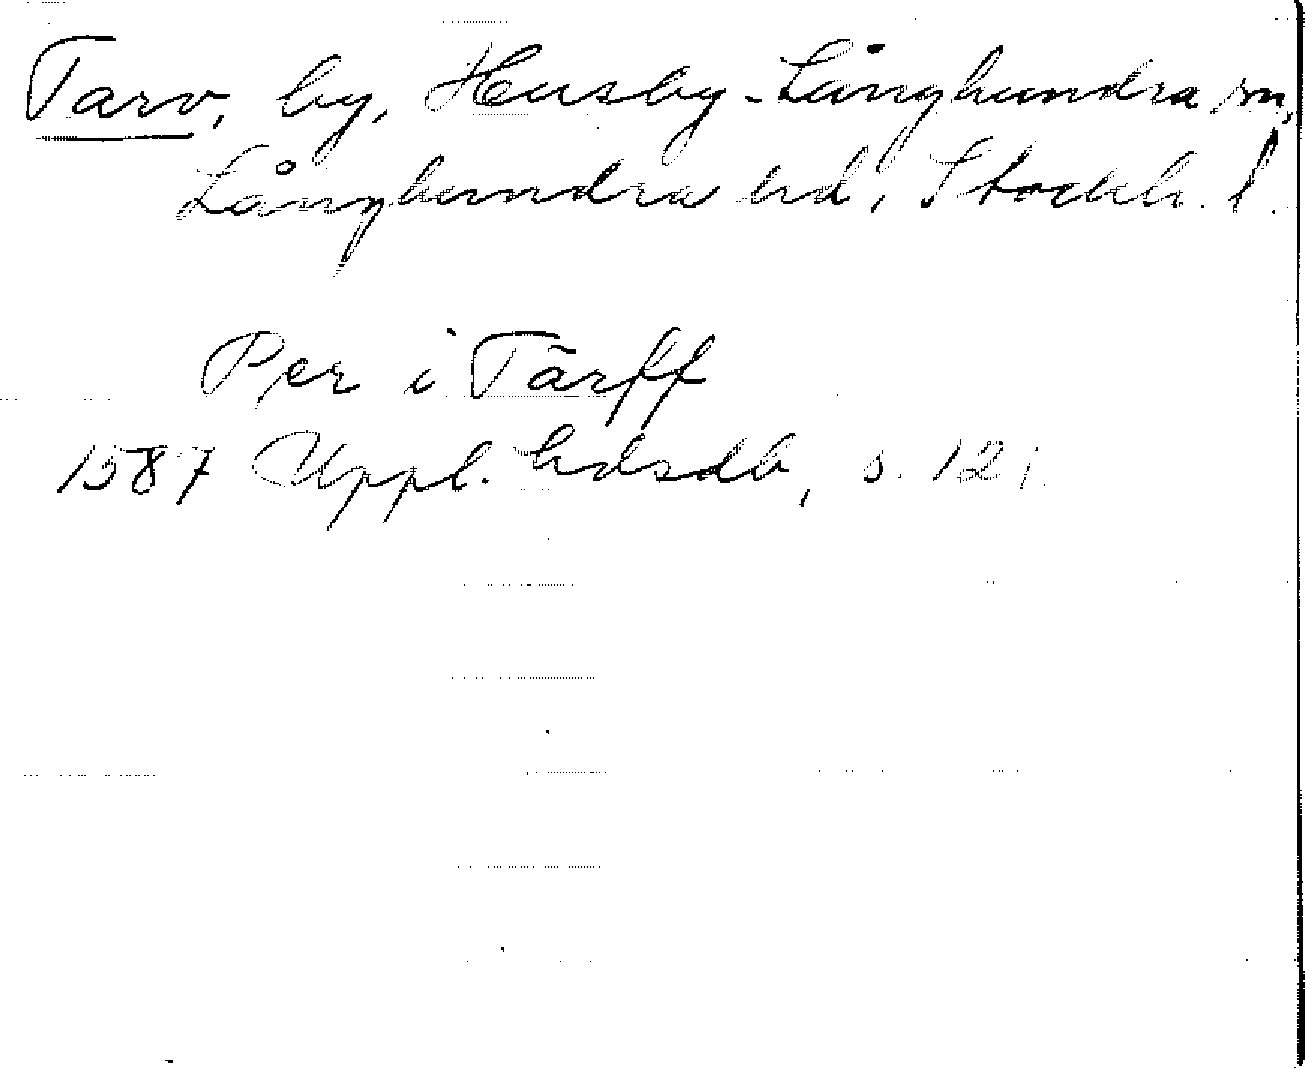 Tarv, by, Husby-Långhundra sn,
Långhundra hd, Stockh. l.
Per i Tärff
1587 Uppl. hdsdb, s. 121.